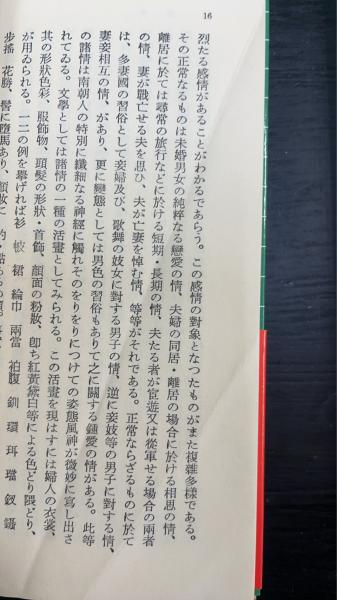 16
烈たる感情があることがわかるであらう。この感情の對象となつたものがまた複雜多樣である。
その正常なるものは未婚男女の純粹なる戀愛の情、夫婦の同居・離居の場合に於ける相思の情、
離居に於ては尋常の旅行などに於ける短期・長期の情、夫たる者が宦遊又は從軍せる場合の兩者
の情、妻が戰亡せる夫を思ひ、夫が亡妻を悼む情、等等がそれである。正常ならざるものに於て
は、多妻國の習俗として妾婦及び、歌舞の妓女に對する男子の情、逆に妾妓等の男子に對する情、
妻妾相互の情、があり、更に變態としては男色の習俗もありて之に關する鍾愛の情がある。此等
の諸情は南朝人の特別に纖細なる神經に觸れそのをりをりにつけての姿態風神が微妙に寫し出さ
れてゐる。文學としては諸情の一種の活畫としてみられる。この活畫を現はすには婦人の衣裳、
其の形狀色彩、服飾物、頭髮の形狀・首飾、顏面の粉妝、卽ち紅黃黛白等による色どり隈どり、
が用ゐられる。一二の例を擧げれば衫 帔 裙 綸巾 兩當 袙腹 釧 環 珥 璫 釵 鑷
步搖 花勝、髻に墮馬あり、顏妝に